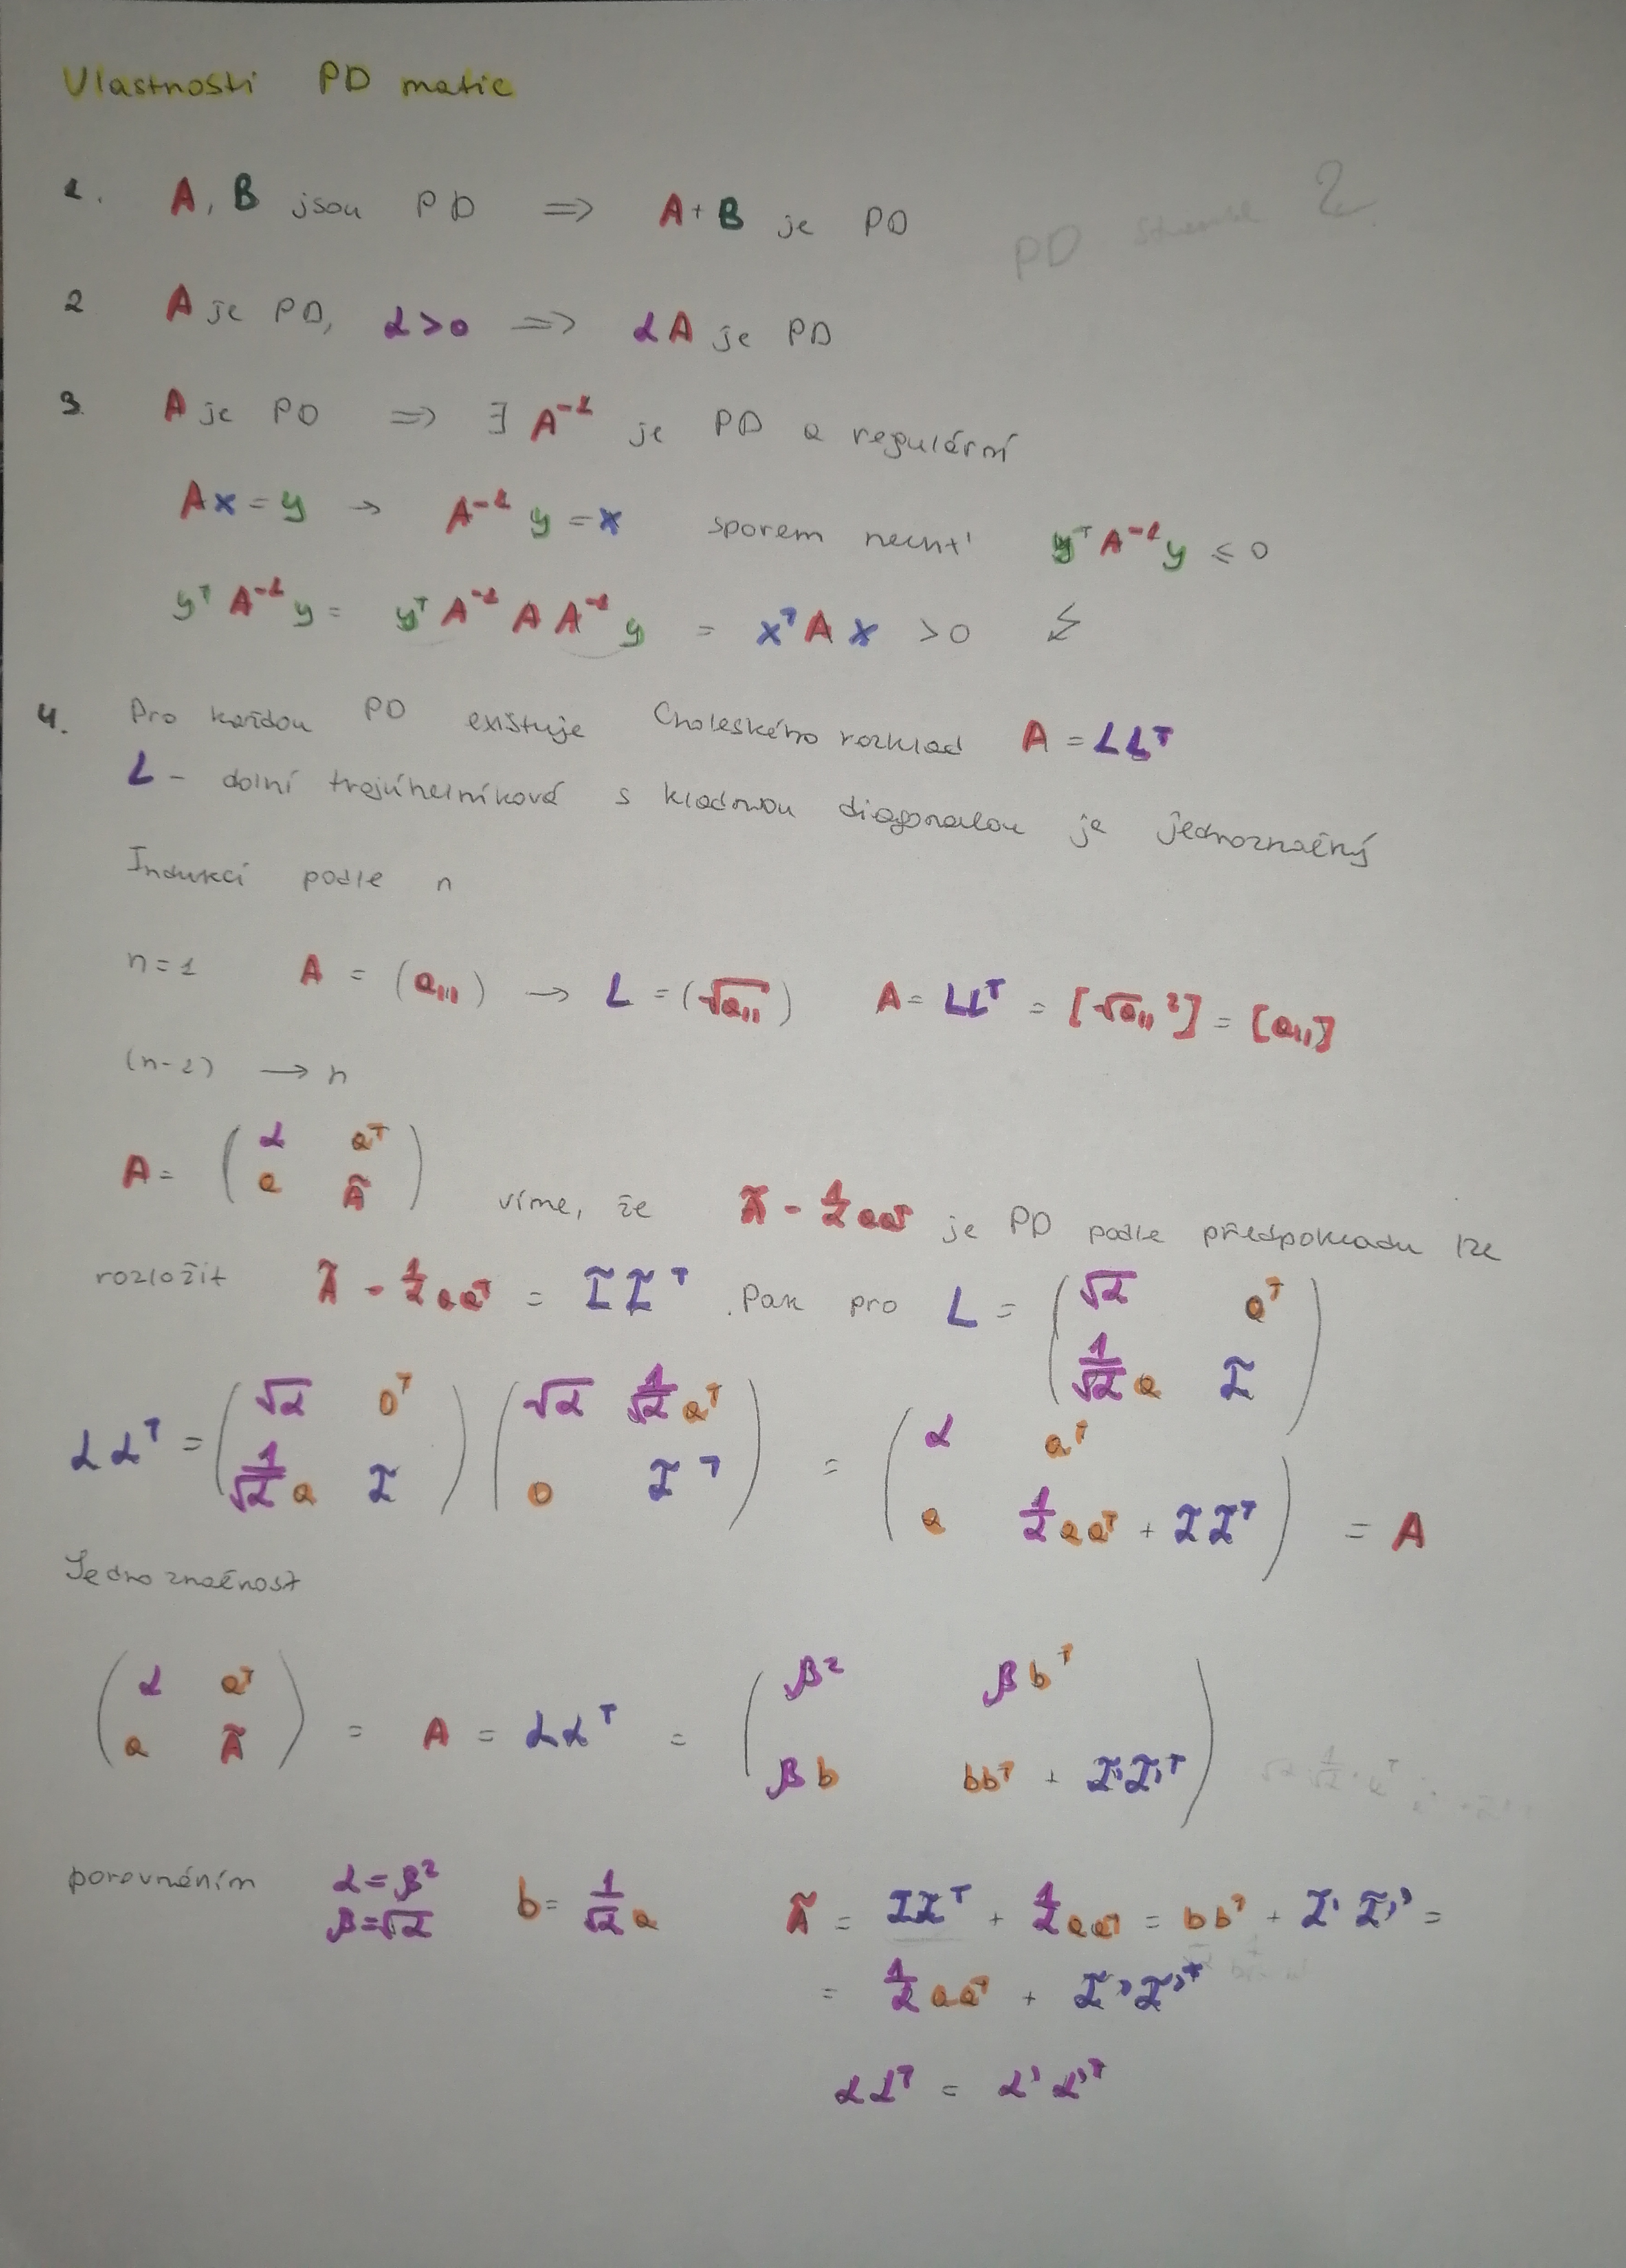 Vlastnosti PD matic
PD 2
1. A, B jsou PD ⇒ A+B je PD
2 A je PD, α>0 ⇒ αA je PD
3. A je PD ⇒ ∃ A⁻¹ je PD a regulární
Ax = y → A⁻¹ y = x sporem nechť yᵀA⁻¹y ≤ 0
yᵀ A⁻¹ y = yᵀ A⁻¹ A A⁻¹ y = xᵀ A x > 0 ↯
4. Pro každou PD existuje Choleského rozklad A = LLᵀ
L – dolní trojúhelníková s kladnou diagonalou je jednoznačný
Indukcí podle n
n=1 A = (a₁₁) → L = (√a₁₁) A = LLᵀ = [√a₁₁²] = [a₁₁]
(n-1) → n
A = ( α aᵀ ; a Ã ) víme, že Ã - 1/α aaᵀ je PD podle předpokladu lze
rozložit Ã - 1/α aaᵀ = L̃ L̃ᵀ. Pak pro L = ( √α 0ᵀ ; 1/√α a L̃ )
LLᵀ = ( √α 0ᵀ ; 1/√α a L̃ ) ( √α 1/√α aᵀ ; 0 L̃ᵀ ) = ( α aᵀ ; a 1/α aaᵀ + L̃L̃ᵀ ) = A
Jednoznačnost
( α aᵀ ; a Ã ) = A = LLᵀ = ( β² βbᵀ ; βb bbᵀ + L̃'L̃'ᵀ )
porovnáním α = β² b = 1/√α a Ã = L̃L̃ᵀ + 1/α aaᵀ = bbᵀ + L̃' L̃'ᵀ =
β = √α = 1/α aaᵀ + L̃'L̃'ᵀ
LLᵀ = L'L'ᵀ